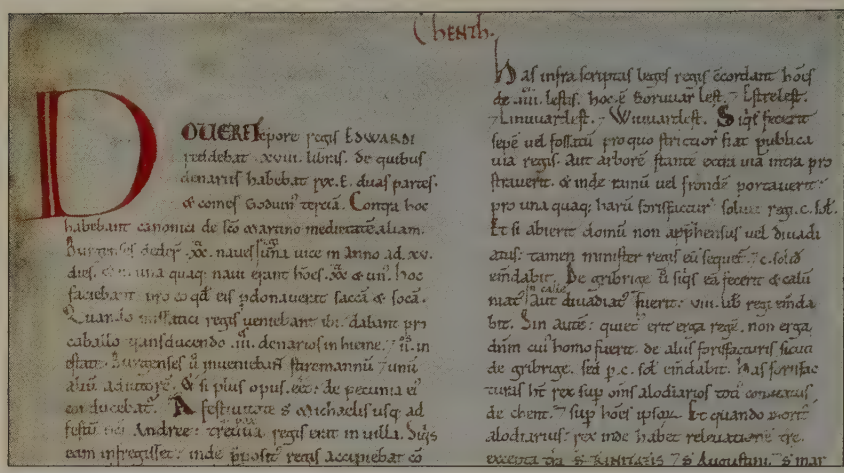 Chenth.
DOVERE tẽpore regis EDWARDI
reddebat .xviii. libris. de quibus
denariis habebat rex .E. duas partes.
& comes Goduin' terciã. Contra hoc
habebant canonici de sc̃o Martino medietatẽ aliam.
Burgenses dederunt .xx. naues una uice in anno ad .xv.
dies. & in una quaq; naui erant hoẽs .xx. & un'. hoc
faciebant pro eo qđ eis pdonauerit saccã & socã.
Quando missatici regis ueniebant ibi: dabant pro
caballo transducendo .iii. denarios in hieme. ⁊ .ii. in
estate. Burgenses ũ inueniebant stiremannũ ⁊ unũ
aliũ adiutorẽ. & si plus opus eẽt: de pecunia ei'
conducebat'. A festiuitate S Michaelis usq; ad
festũ sc̃i Andree: treuua regis erat in uilla. Siq̃s
eam infregisset: inde pposit' regis accipiebat cõ
has infra scriptas leges regis c̃cordant hoẽs
de .iiii. lestis. hoc .ẽ. Boruuar lest. ⁊ Estrelest.
⁊ Linuuarlest. ⁊ Wiuuarlest. Siq̃s fecerit
sepẽ uel fossatũ pro quo strictior fiat publica
uia regis. Aut arborẽ stantẽ extra uiã intra pro
strauerit. & inde ramũ uel frondẽ portauerit:
pro una quaq; harũ forisfacturar̃ soluet regi .c. sol.
Et si abierit domũ non appr̃hensus uel diuadi
atus: tamen minister regis eũ sequet'. ⁊ .c. solid
em̃dabit. De gribrige ũ siq̃s eã fecerit & calũ
niat' aut diuadiat' fuerit: .viii. lib̃ regi em̃da
bit. Sin autẽ: quiet' erit erga regẽ. non erga
dñm cui' homo fuerit. de aliis forisfacturis sicut
de gribrige. sed p .c. sol em̃dabit. has forisfac
turas hт̃ rex sup om̃s alodiarios toti' comitatus
de chent. ⁊ sup hoẽs ipsor̃. Et quando morit'
alodiarius: rex inde habet releuationẽ tr̃e.
excepta tr̃a S TRINITATIS ⁊ S Augustini. ⁊ S mar